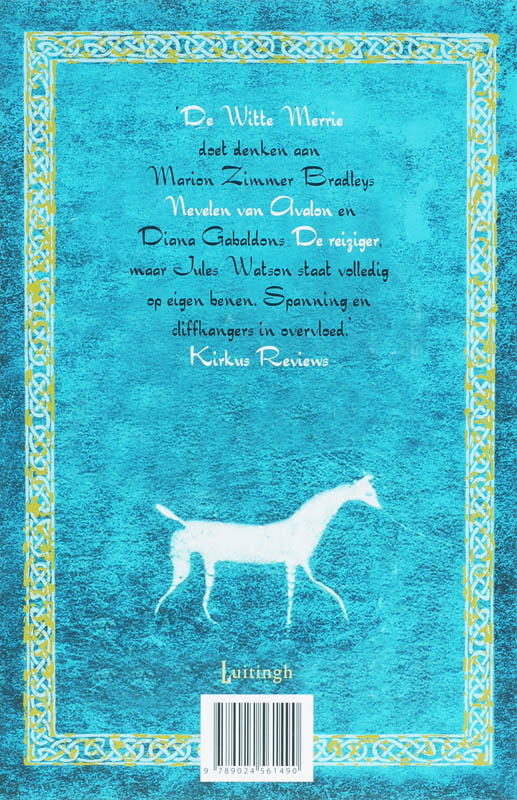 'De Witte Merrie
doet denken aan
Marion Zimmer Bradleys
Nevelen van Avalon en
Diana Gabaldons De reiziger,
maar Jules Watson staat volledig
op eigen benen. Spanning en
cliffhangers in overvloed.'
Kirkus Reviews
Luitingh
9 789024 561490